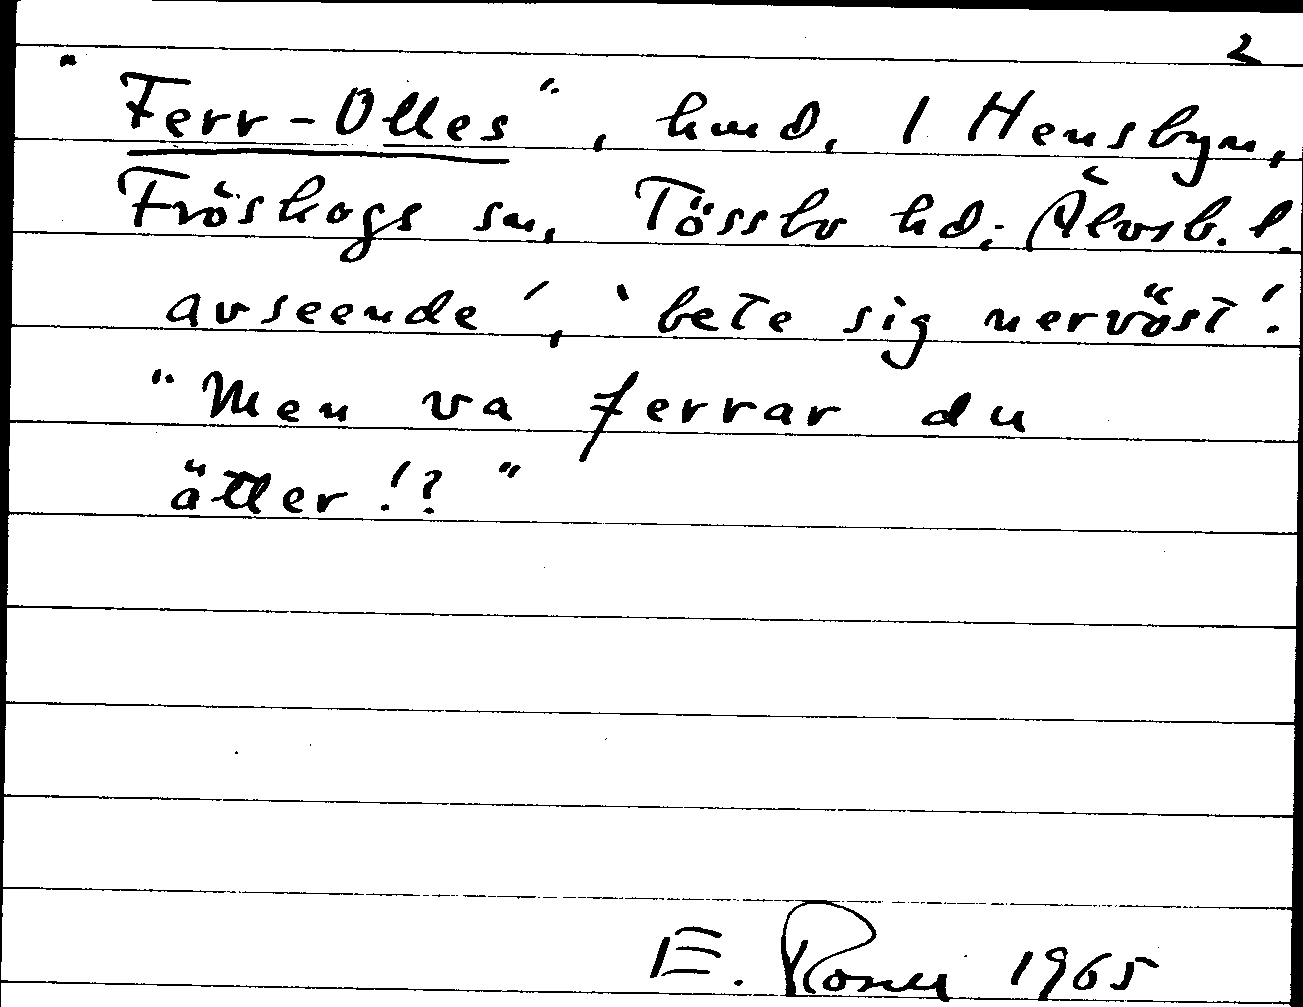 2
"Ferr-Olles", hmd. 1 Hensbyn,
Fröskogs sn, Tössbo hd; Älvsb. l.
avseende', 'bete sig nervöst'.
"Men va ferrar du
ätter!?"
E. Rosell 1965